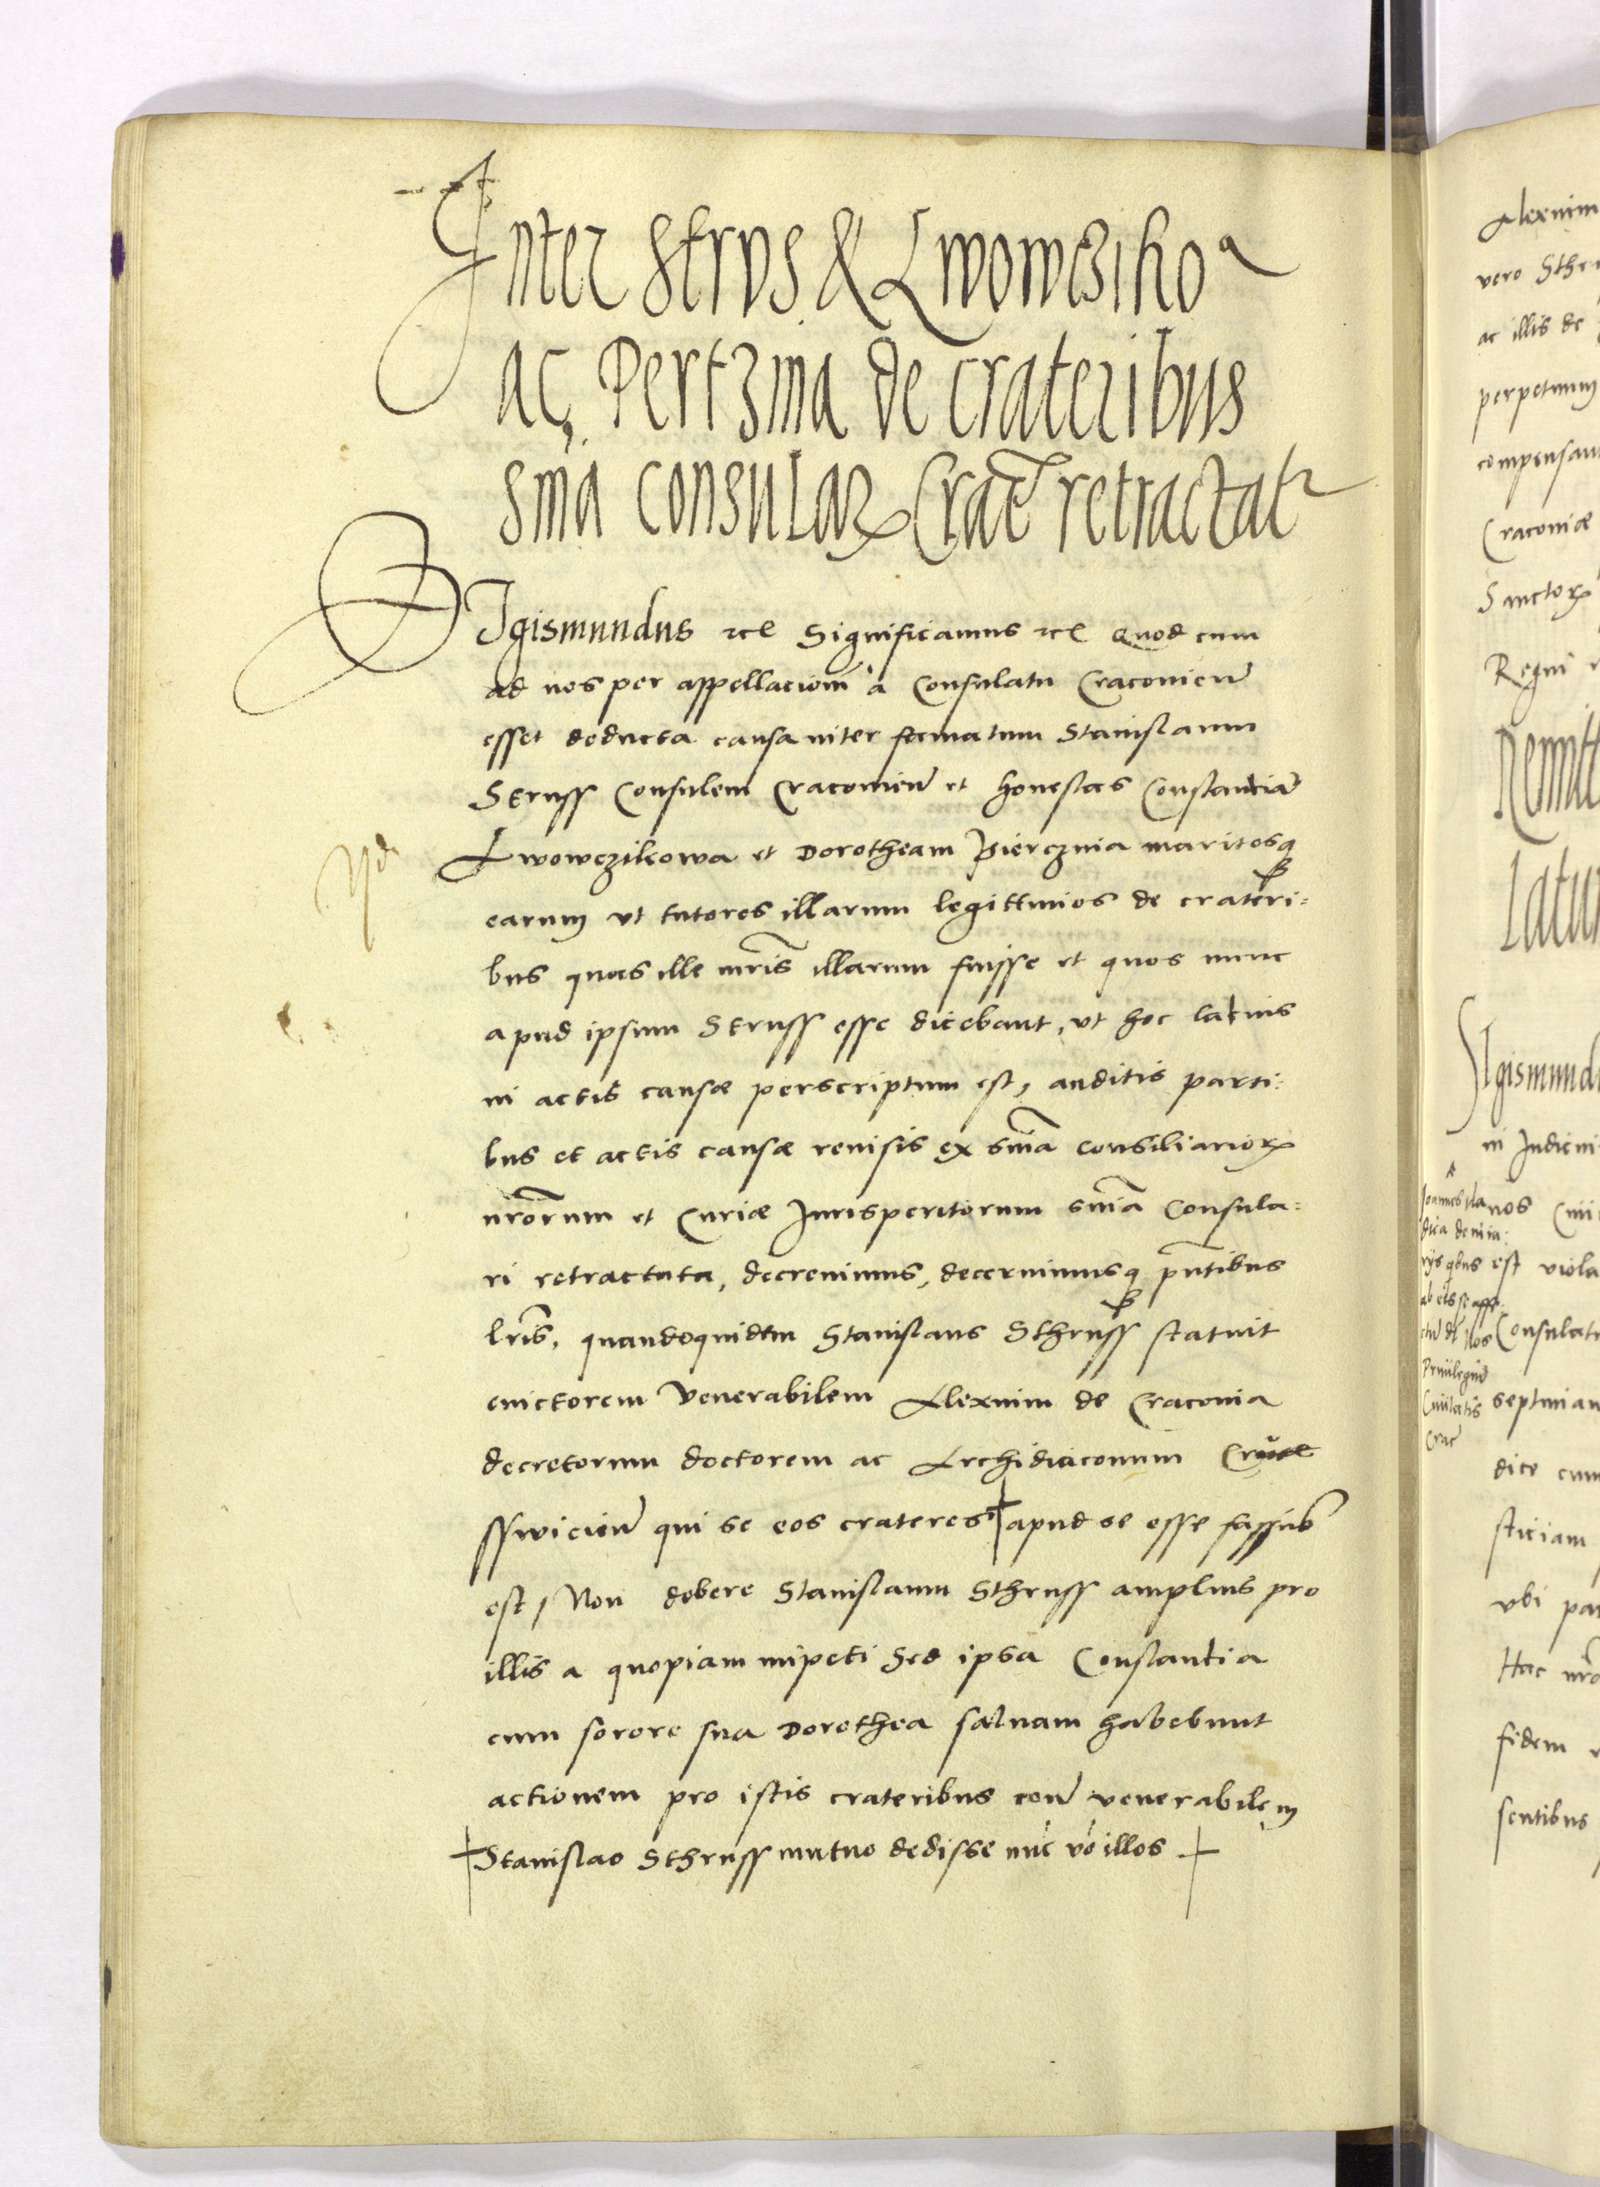 Inter Strus & Lwowcziko^a
ac Pertzina de crateribus
sma consular Crac retractat
SIgismundus etc Significamus etc Quod cum
ad nos per appellacionem a Consulatu Cracovien
esset deducta causa inter famatum Stanislaum
Struss Consulem Cracovien et honestas Constantiam
Lwowczikowa et Dorotheam Pierczina maritosq
earum ut tutores illarum legittimos de crateri=
bus quos ille mris illarum fuisse et quos nunc
apud ipsum Struss esse dicebant, ut hoc latius
in actis causæ perscriptum est, auditis parti=
bus et actis causæ revisis ex sma consiliarior
nrorum et Curiæ Jurisperitorum sma Consula=
ri retractata, decrevimus, decernimusq pntibus
lris, quandoquidem Stanislaus Sthruss statuit
evictorem Venerabilem Alexium de Cracovia
decretorum doctorem ac Archidiaconum
sswicien qui se eos crateres + apud se esse fassus
est, Non debere Stanislaum Sthruss amplius pro
illis a quopiam impeti Sed ipsa Constantia
cum sorore sua Dorothea salvam habebunt
actionem pro istis crateribus con venerabilem
+ Stanislao Sthruss mutuo dedisse nuc vo illos +
Alexium
vero Sthr
ac illis de
perpetuum
compensan
Cracoviæ
Sanctor
Regni
Remitt
latur
SIgismund
in Judicii
nos Civi
est viola
Consulatu
septiman
dice cum
sticiam
ubi par
Hac nro
fidem
sentibus
Privilegiu
Civitatis
Crac